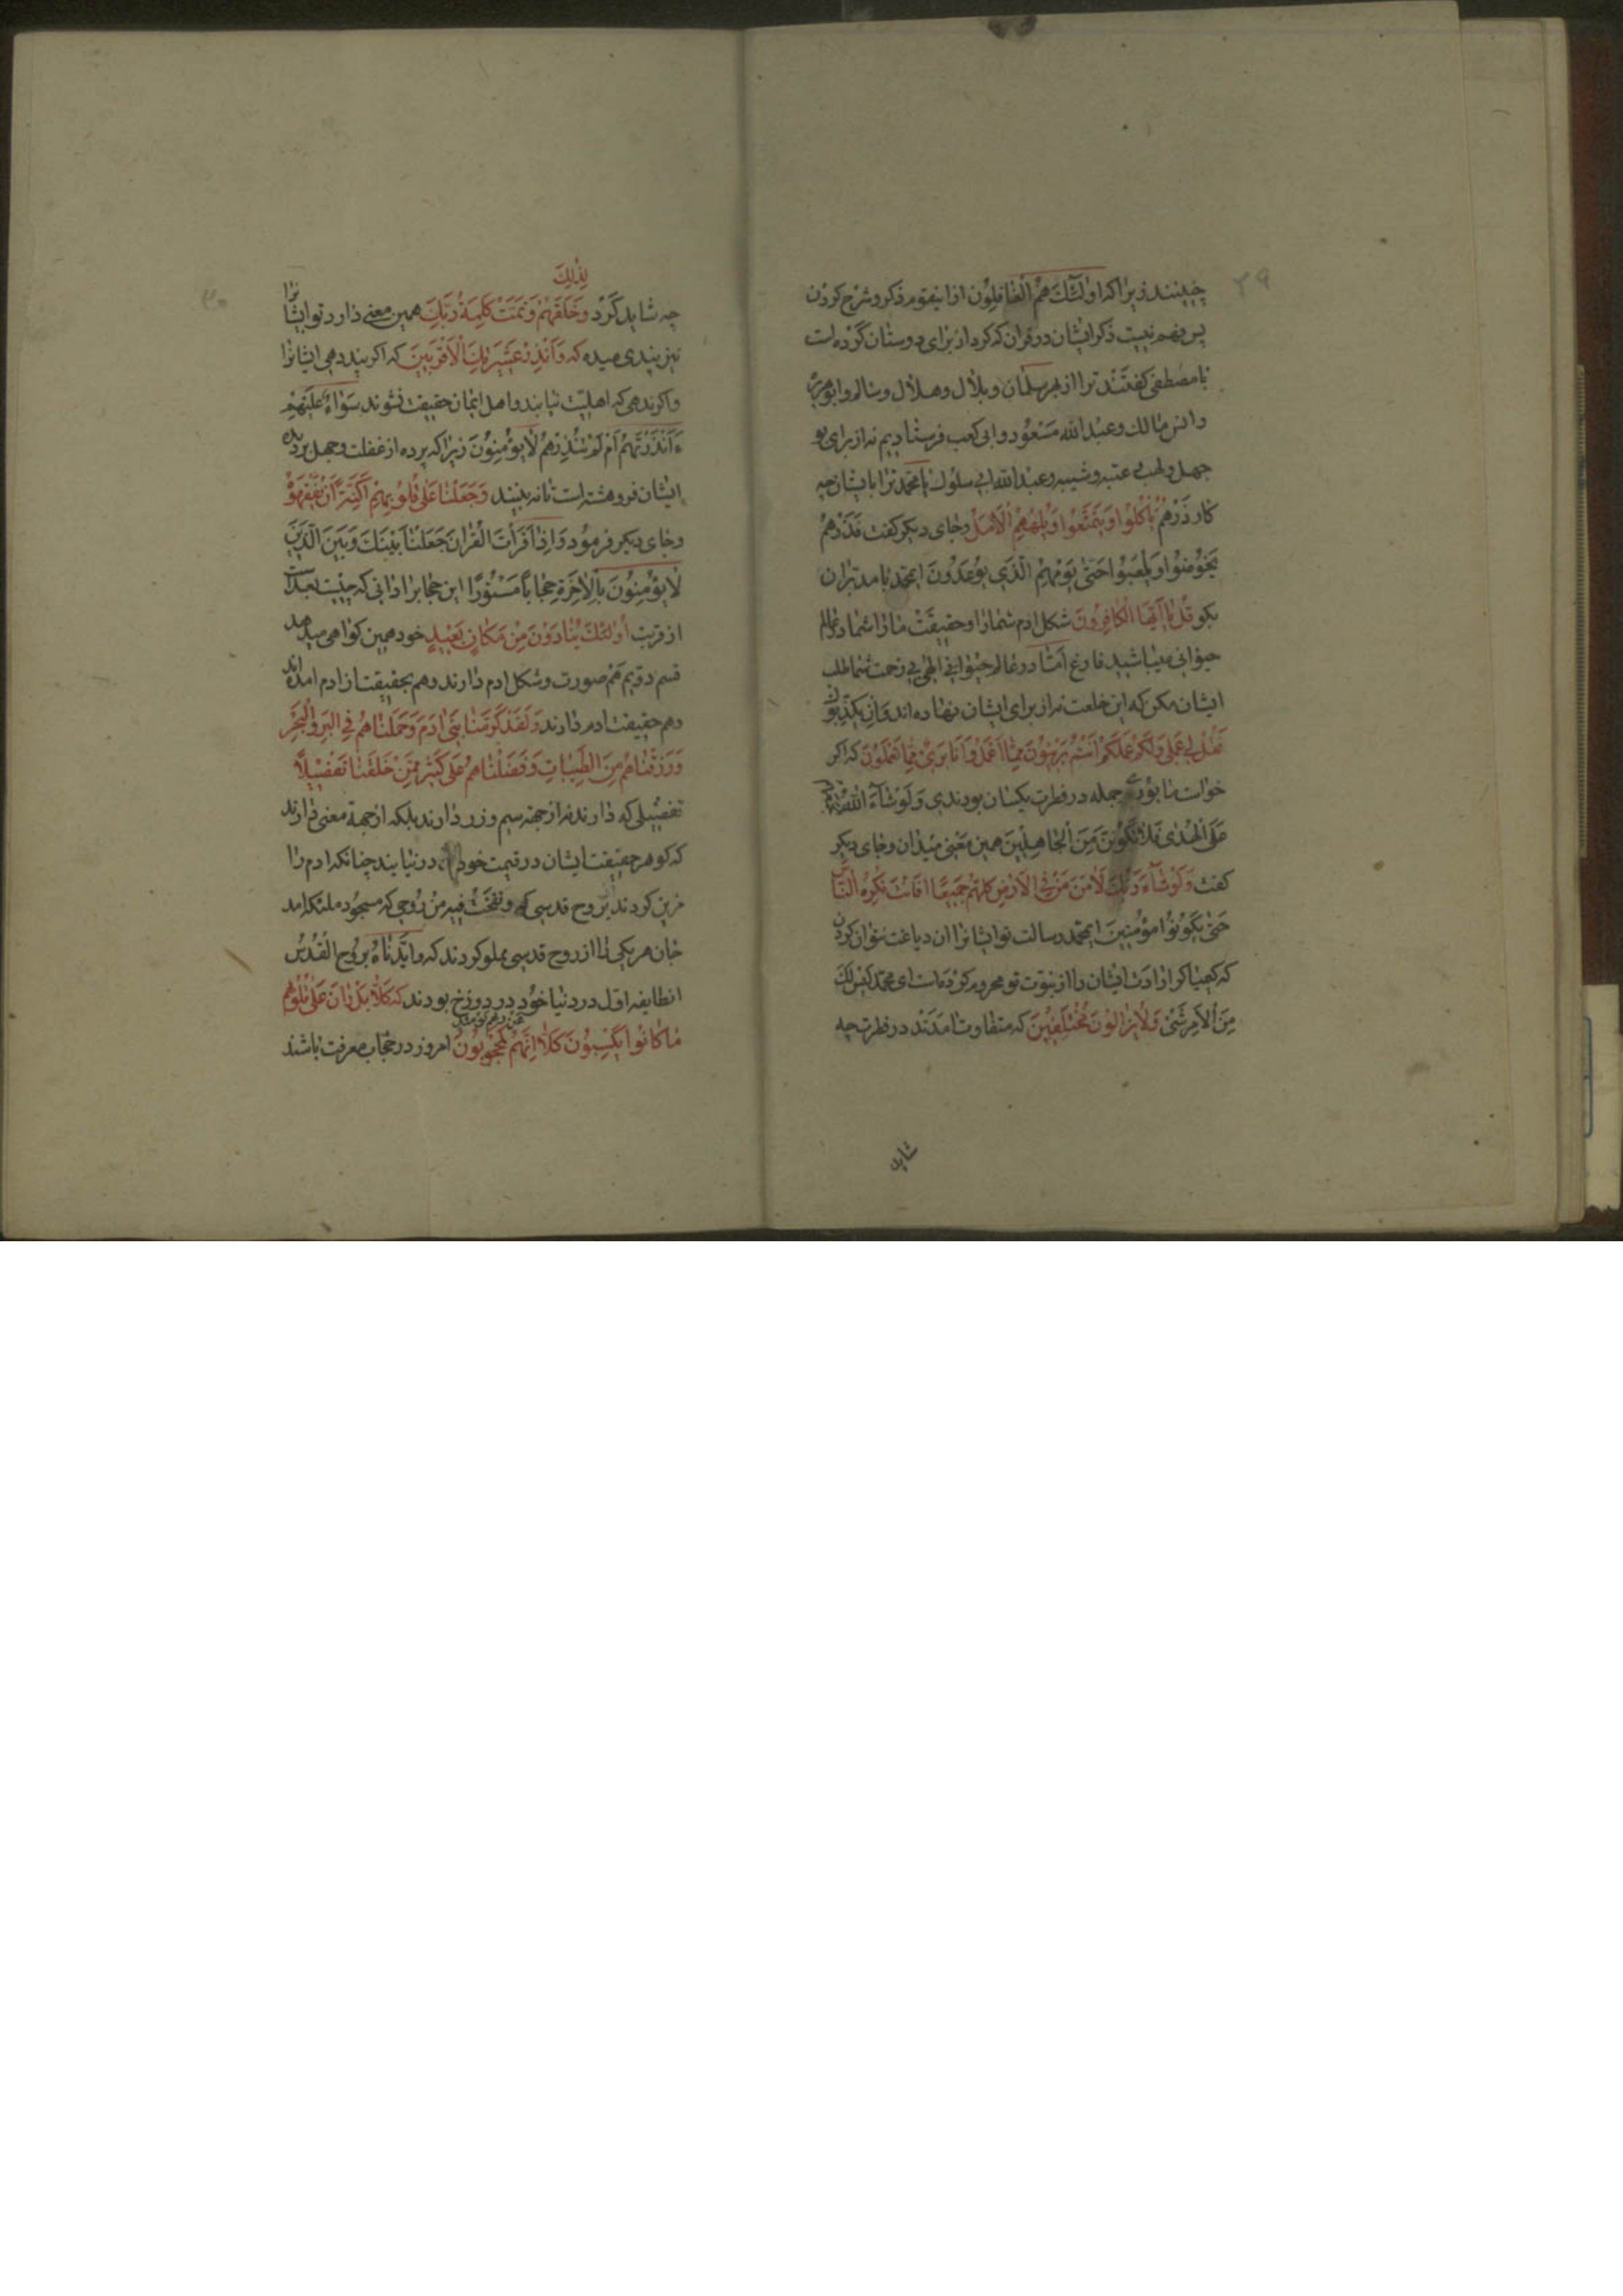 ۲۹
چینند زیرا که اولئك هُمُ الْغافِلُون از اینقوم ذکر و شرح کردن
پس مهم نیست ذکر ایشان در قران که کرد از برای دوستان کرده است
یا مصطفی کفتند ترا از بهر سلمان و بلال و هلال و سالم و ابو هریره
و انس مالك و عبد الله مسعود و ابی کعب فرستادیم نه از برای بو
جهل و لهب عتبه و شیبه و عبد الله ابی سلول یا محمد ترا با یشان چه
کار ذَرْهُمْ يَأكُلُوا وَيَتَمَتَّعُوا وَيُلْهِهِمُ الْاَمَلُ و جای دیکر کفت فَذَرْهُمْ
يَخُوضُوا وَيَلْعَبُوا حَتّى يَوْمَهُمُ الَّذي يُوعَدُونَ ایمحمد با مدبران
بکو قُلْ يا اَيُّهَا الْكافِرُونَ شکل ادم شما را و حقیقت ما را شما در عالم
حیوانی میباشید فارغ امّا در عالم حیوانی الهی بی زحمت شما طلب
ایشان مکن که این خلعت نه از برای ایشان نهاده اند وَاِنْ يُكَذِّبُوكَ
فَقُلْ لي عَمَلي وَلَكُمْ عَمَلُكُمْ اَنْتُمْ بَريئُونَ مِمّا اَعْمَلُ وَاَنَا بَرئٌ مِمّا تَعْمَلُونَ که اکر
خواست ما بودی جمله در فطرت یکسان بودندی وَلَوْ شآءَ اللهُ لَجَمَعَهُمْ
عَلَى الْهُدى فَلا تَكُونَنَّ مِنَ الْجاهِلينَ همین معنی میدان و جای دیکر
کفت وَلَوْ شآءَ رَبُّكَ لَاٰمَنَ مَنْ فِي الْاَرْضِ كُلُّهُمْ جَميعًا اَفَاَنْتَ تُكْرِهُ النّاسَ
حَتّى يَكُونُوا مُؤْمِنينَ ایمحمد رسالت تو ایشانرا ان دباغت نتوان کردن
که کیمیا کر ارادت ایشان را از نبوّت تو محروم کرده است ای محمد لَيْسَ لَكَ
مِنَ الْاَمْرِ شَئ وَلا يَزالُونَ مُخْتَلِفينَ که متفاوت امدند در فطرت چه
شاید
۳۰
لِذٰلِكَ
چه شاید کرد وَخَلَقَهُمْ وَتَمَّتْ كَلِمَةُ رَبِّكَ همین معنی دارد تو ایشانرا
نیز پندی میده که وَاَنْذِرْ عَشيرَتَكَ الْاَقْرَبينَ که اکر پند دهی ایشانرا
و اکر ندهی که اهلیّت نیابند و اهل ایمان حقیقت نشوند سَوآءٌ عَلَيْهِمْ
ءَاَنْذَرْتَهُمْ اَمْ لَمْ تُنْذِرْهُمْ لا يُؤْمِنُونَ زیرا که پرده از غفلت و جهل بر دیده
ایشان فرو هشته است تا نه بینند وَجَعَلْنا عَلى قُلُوبِهِمْ اَكِنَّةً اَنْ يَفْقَهُوهُ
و جای دیکر فرمود وَاِذا قَرَأتَ الْقُرانَ جَعَلْنا بَيْنَكَ وَبَيْنَ الَّذينَ
لا يُؤْمِنُونَ بِالْاٰخِرَةِ حِجابًا مَسْتُورًا این حجابرا دانی که چیست بعد است
از قربت اُولئِكَ يُنادَوْنَ مِنْ مَكانٍ بَعيدٍ خود همین کواهی میدهد
قسم دویم هم صورت و شکل ادم دارند و هم بحقیقت از ادم امده اند
و هم حقیقت ادم دارند وَلَقَدْ كَرَّمْنا بَني ادَمَ وَحَمَلْناهُمْ فِي الْبَرِّ وَالْبَحْرِ
وَرَزَقْناهُمْ مِنَ الطَّيِّباتِ وَفَضَّلْناهُمْ عَلى كَثيرٍ مِمَّنْ خَلَقْنا تَفْضيلًا
تفضیلی که دارند نه از جهة سیم و زر دارند بلکه از جهة معنی دارند
که کوهر حقیقت ایشان در قیمت خود در دنیا یند چنانکه ادم را
مزین کردند بروح قدسی که وَنَفَخْتُ فيهِ مِنْ رُوحي که مسجود ملئکه امد
جان هر یکی را از روح قدسی مملو کردند که وَاَيَّدْناهُ بِرُوحِ الْقُدُسِ
انطایفه اول در دنیا خود در دوزخ بودند که كَلّا بَلْ رانَ عَلى قُلُوبِهِمْ
عَنْ رَبِّهِمْ يَوْمَئِذٍ
ما كانُوا يَكْسِبُونَ كَلّا اِنَّهُمْ لَمَحْجُوبُونَ امروز در حجاب معرفت باشند